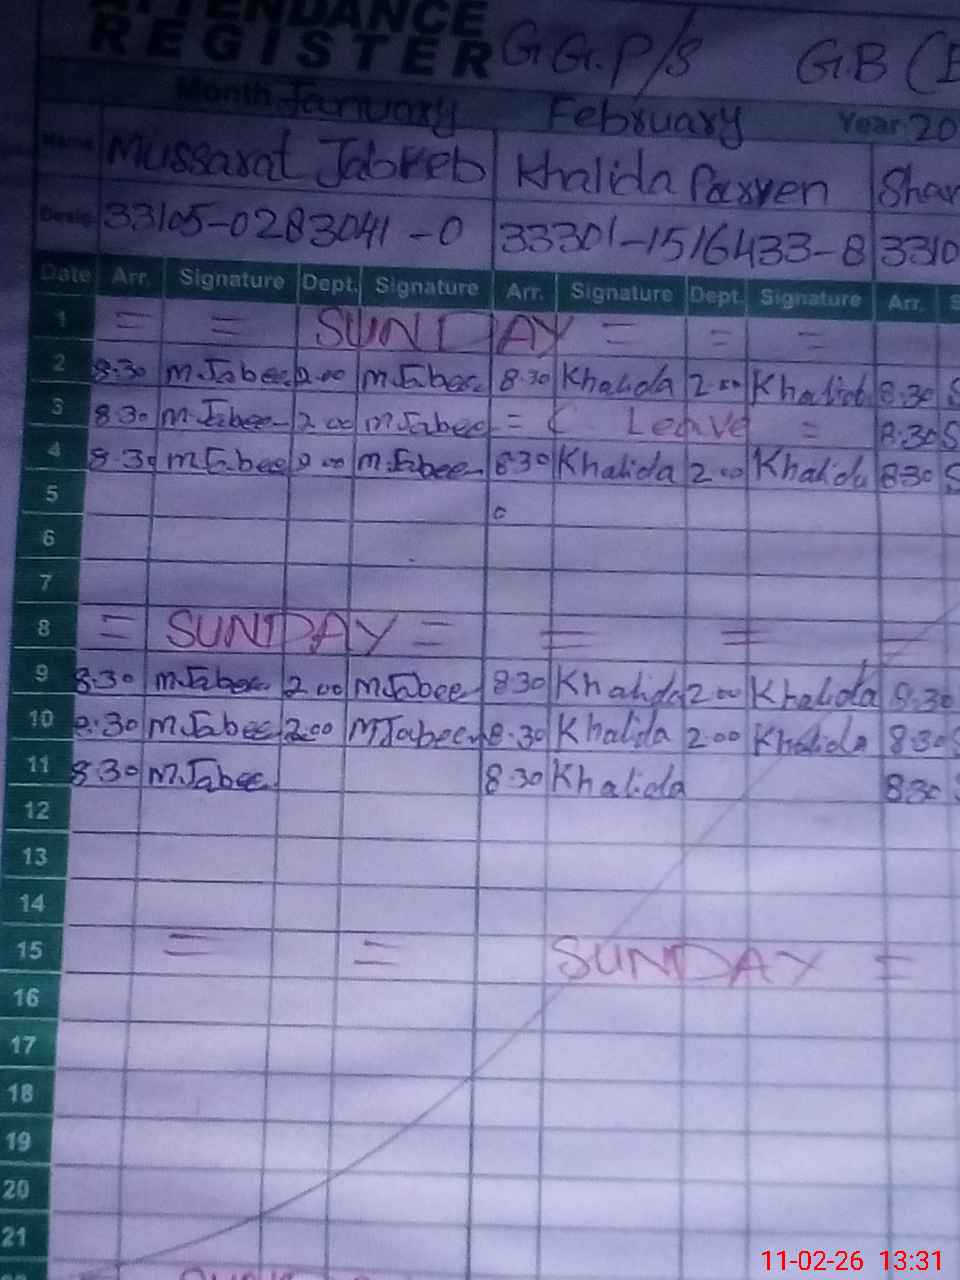 ATTENDANCE
REGISTER G.G.P/S G.B
Month January February Year 20
Name Mussarat Jabeeb Khalida Parven Shar
Desig. 33105-0283041-0 33301-1516433-8 3310
Date Arr. Signature Dept. Signature Arr. Signature Dept. Signature Arr. S
1 = = SUNDAY = = =
2 8.30 M.Jabee 2.00 M.Jabee 8.30 Khalida 2.00 Khalida 8.30 S
3 8.30 M.Jabee 2.00 M.Jabee = C Leave = 8.30 S
4 8.30 M.Jabee 2.00 M.Jabee 8.30 Khalida 2.00 Khalida 8.30 S
5
6
7
8 = SUNDAY = = = =
9 8.30 M.Jabee 2.00 M.Jabee 8.30 Khalida 2.00 Khalida 8.30
10 8.30 M.Jabee 2.00 M.Jabee 8.30 Khalida 2.00 Khalida 8.30 S
11 8.30 M.Jabee 8.30 Khalida 8.30 S
12
13
14
15 = = SUNDAY =
16
17
18
19
20
21
11-02-26 13:31